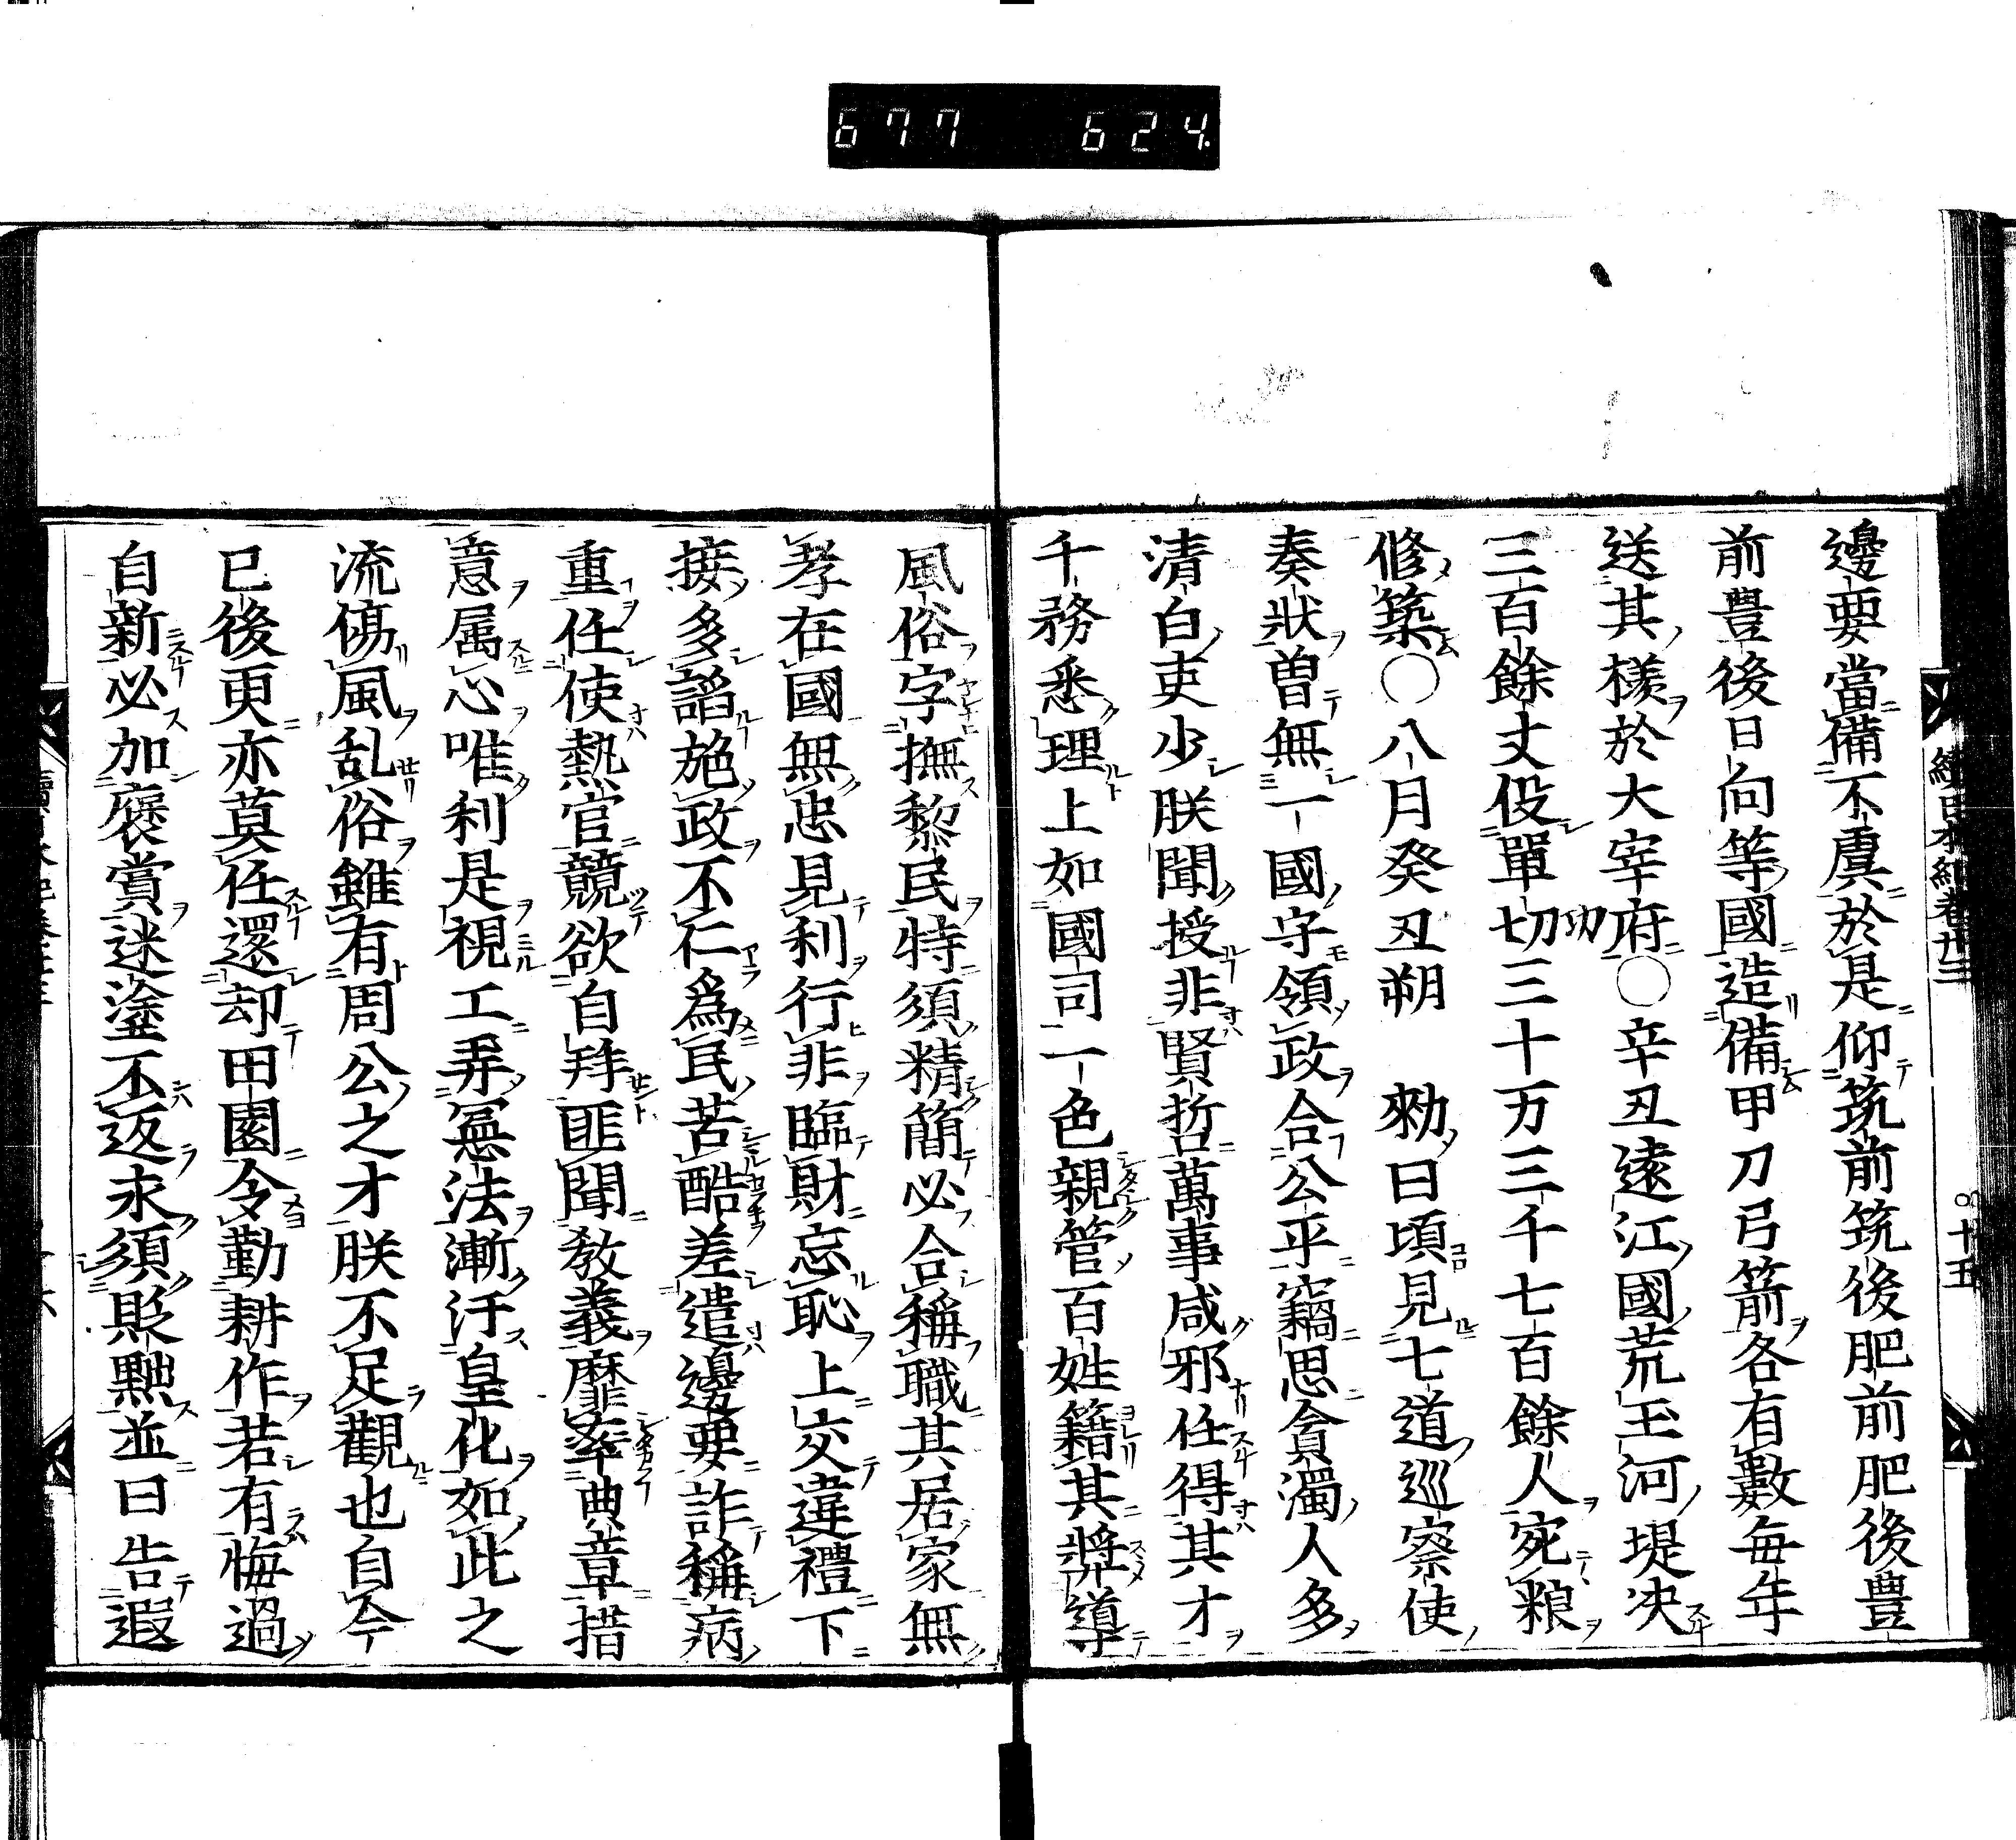 677 624.
續日本紀卷廿三 十五
邊要當備不虞於是仰筑前筑後肥前肥後豊
前豊後日向等國造備甲刀弓箭各有數毎年
送其様於大宰府〇辛丑遠江國荒玉河堤决
三百餘丈役單切功三十万三千七百餘人宛粮
修築〇八月癸丑朔 勑曰頃見七道巡察使
奏狀曽無一國守領政合公平竊思貪濁人多
清白吏少朕聞授非賢哲萬事咸邪任得其才
千務悉理上如國司一色親管百姓籍其奨導
風俗字撫黎民特須精簡必合稱職其居家無
孝在國無忠見利行非臨財忘恥上交違禮下
接多謟施政不仁爲民苦酷差遣邊要詐稱病
重任使𫝆官競欲自拜匪聞教義靡率典章措
意属心唯利是視工弄憲法漸汙皇化如此之
流傷風乱俗雖有周公之才朕不足觀也自今
已後更亦莫任還却田園令勤耕作若有悔過
自新必加褒賞迷塗不返永須貶黜並曰告遐